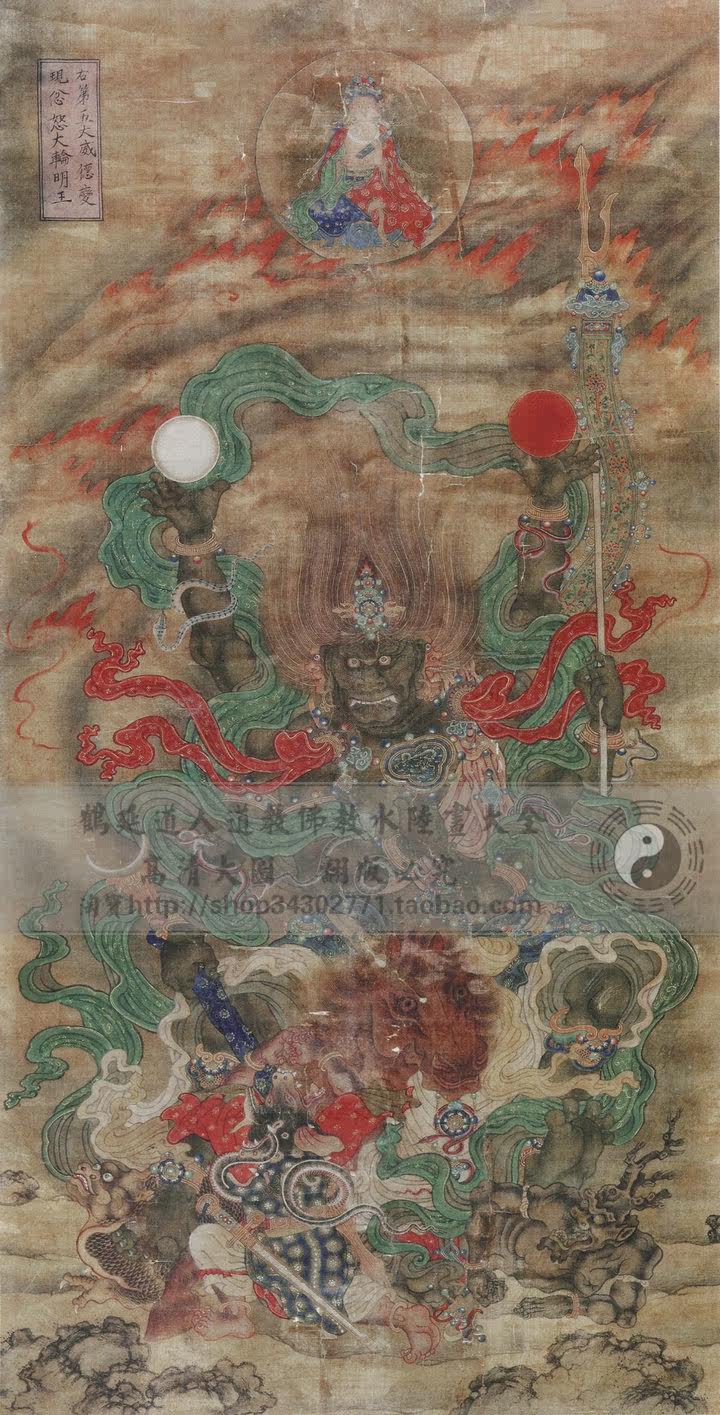 右第五大威德變
現忿怒大輪明王
鶴延道人道教佛教水陸畫大全
高清大圖 翻版必究
淘寶http://shop34302771.taobao.com